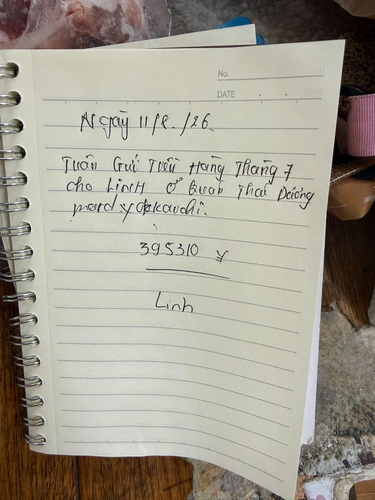 No.
DATE
Ngày 11/8./26.
Tuấn Gửi Tiền Hàng Tháng 7
cho LinH Ở Quán Thái Dương
yokkaichi.
395310 ¥
Linh